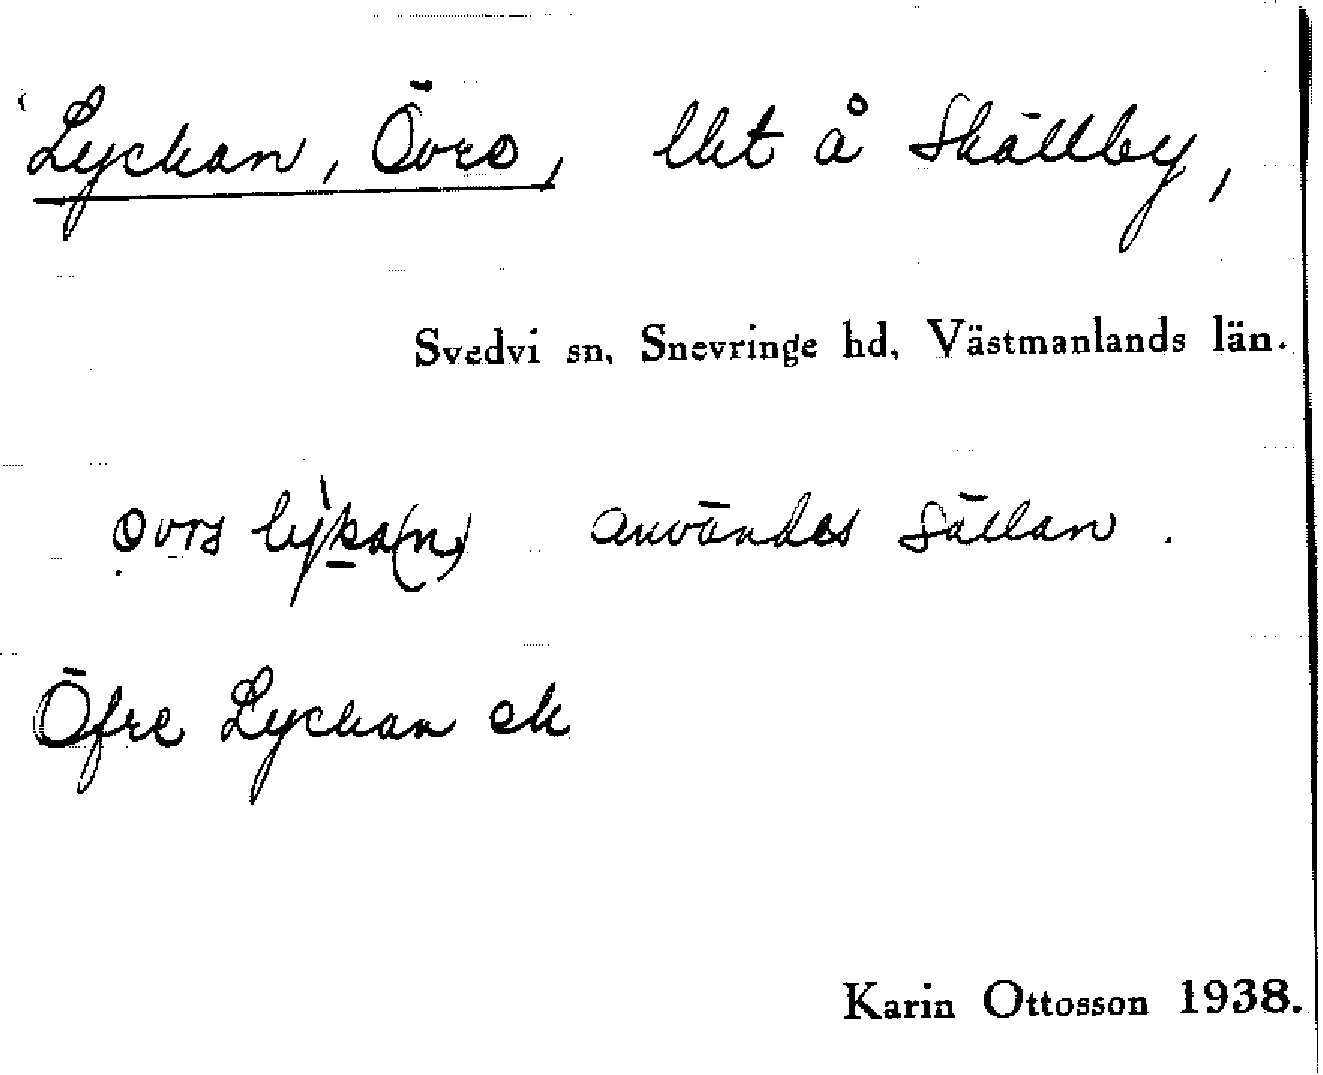 Lyckan, Övre, lht å Skällby,
Svedvi sn, Snevringe hd, Västmanlands län.
användes sällan.
Öfre Lyckan ek
Karin Ottosson 1938.